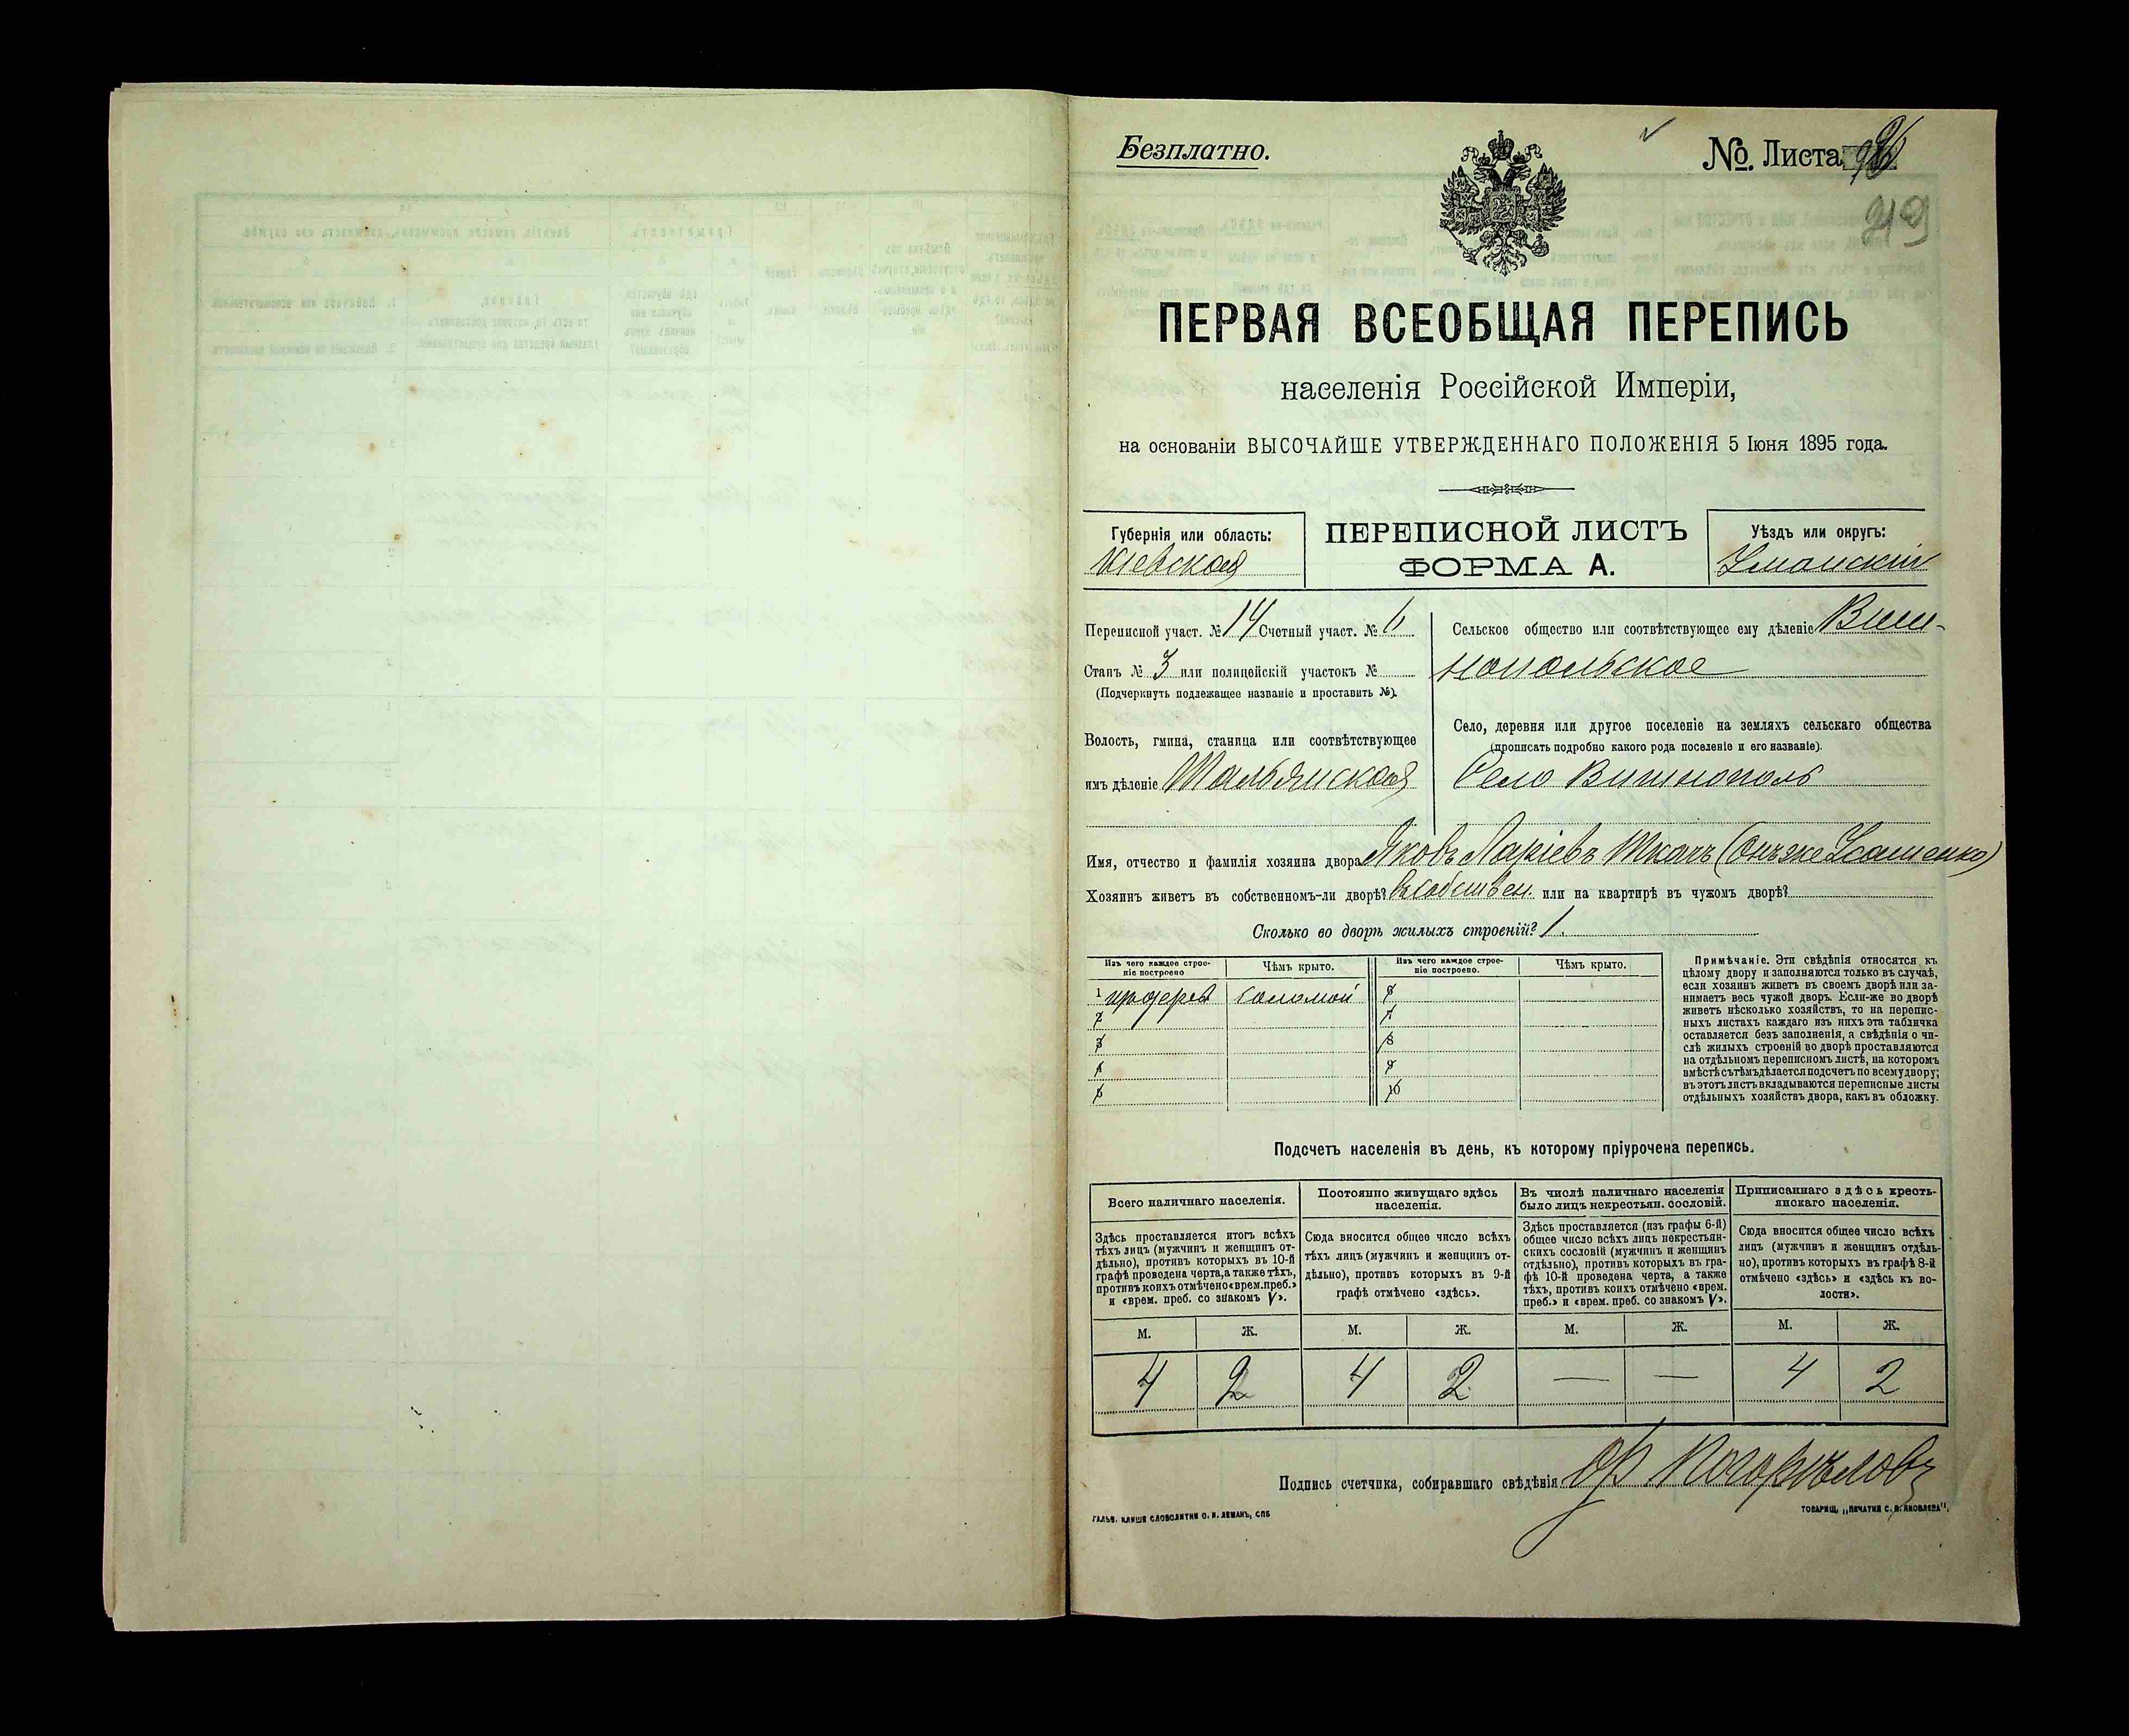 Безплатно.
№ Листа 96
49
ПЕРВАЯ ВСЕОБЩАЯ ПЕРЕПИСЬ
населенія Россійской Имперіи,
на основаніи ВЫСОЧАЙШЕ УТВЕРЖДЕННАГО ПОЛОЖЕНІЯ 5 Іюня 1895 года.
Губернія или область:
Кіевская
ПЕРЕПИСНОЙ ЛИСТЪ
ФОРМА А.
Уѣздъ или округъ:
Уманскій
Переписной участ. № 14 Счетный участ. № 6
Станъ № 3 или полицейскій участокъ №
(Подчеркнуть подлежащее названіе и проставить №).
Волость, гмина, станица или соотвѣтствующее
имъ дѣленіе Тальянская
Сельское общество или соотвѣтствующее ему дѣленіе Виш-
нопольское
Село, деревня или другое поселеніе на земляхъ сельскаго общества
(прописать подробно какого рода поселеніе и его названіе).
Село Вишнополь
Имя, отчество и фамилія хозяина двора Яковъ Ткачъ (онъ же Усатенко)
Хозяинъ живетъ въ собственномъ-ли дворѣ? Въ собствен. или на квартирѣ въ чужомъ дворѣ?
Сколько во дворѣ жилыхъ строеній? 1.
Изъ чего каждое строе-
ніе построено
Чѣмъ крыто.
Изъ чего каждое строе-
ніе построено.
Чѣмъ крыто.
1 изъ дерева соломой
2
3
4
5
6
7
8
9
10
Примѣчаніе. Эти свѣдѣнія относятся къ
цѣлому двору и заполняются только въ случаѣ,
если хозяинъ живетъ въ своемъ дворѣ или за-
нимаетъ весь чужой дворъ. Если-же во дворѣ
живетъ нѣсколько хозяйствъ, то на перепис-
ныхъ листахъ каждаго изъ нихъ эта табличка
оставляется безъ заполненія, а свѣдѣнія о чи-
слѣ жилыхъ строеній во дворѣ проставляются
на отдѣльномъ переписномъ листѣ, на которомъ
вмѣстѣ съ тѣмъ дѣлается подсчетъ по всему двору;
въ этотъ листъ вкладываются переписные листы
отдѣльныхъ хозяйствъ двора, какъ въ обложку.
Подсчетъ населенія въ день, къ которому пріурочена перепись.
Всего наличнаго населенія.
Здѣсь проставляется итогъ всѣхъ
тѣхъ лицъ (мужчинъ и женщинъ от-
дѣльно), противъ которыхъ въ 10-й
графѣ проведена черта, а также тѣхъ,
противъ коихъ отмѣчено «врем. преб.»
и «врем. преб. со знакомъ V».
Постоянно живущаго здѣсь
населенія.
Сюда вносится общее число всѣхъ
тѣхъ лицъ (мужчинъ и женщинъ от-
дѣльно), противъ которыхъ въ 9-й
графѣ отмѣчено «здѣсь».
Въ числѣ наличнаго населенія
было лицъ некрестьян. сословій.
Здѣсь проставляется (изъ графы 6-й)
общее число всѣхъ лицъ некрестьян-
скихъ сословій (мужчинъ и женщинъ
отдѣльно), противъ которыхъ въ гра-
фѣ 10-й проведена черта, а также
тѣхъ, противъ коихъ отмѣчено «врем.
преб.» и «врем. преб. со знакомъ V».
Приписаннаго здѣсь кресть-
янскаго населенія.
Сюда вносится общее число всѣхъ
лицъ (мужчинъ и женщинъ отдѣль-
но), противъ которыхъ въ графѣ 8-й
отмѣчено «здѣсь» и «здѣсь къ во-
лости».
М. Ж. М. Ж. М. Ж. М. Ж.
4 2 4 2 — — 4 2
Подпись счетчика, собиравшаго свѣдѣнія Погорѣловъ
ГАЛЬВ. КЛИШЕ СЛОВОЛИТНИ О. И. ЛЕМАНЪ, СПБ
ТОВАРИЩ. „ПЕЧАТНЯ С. П. ЯКОВЛЕВА".